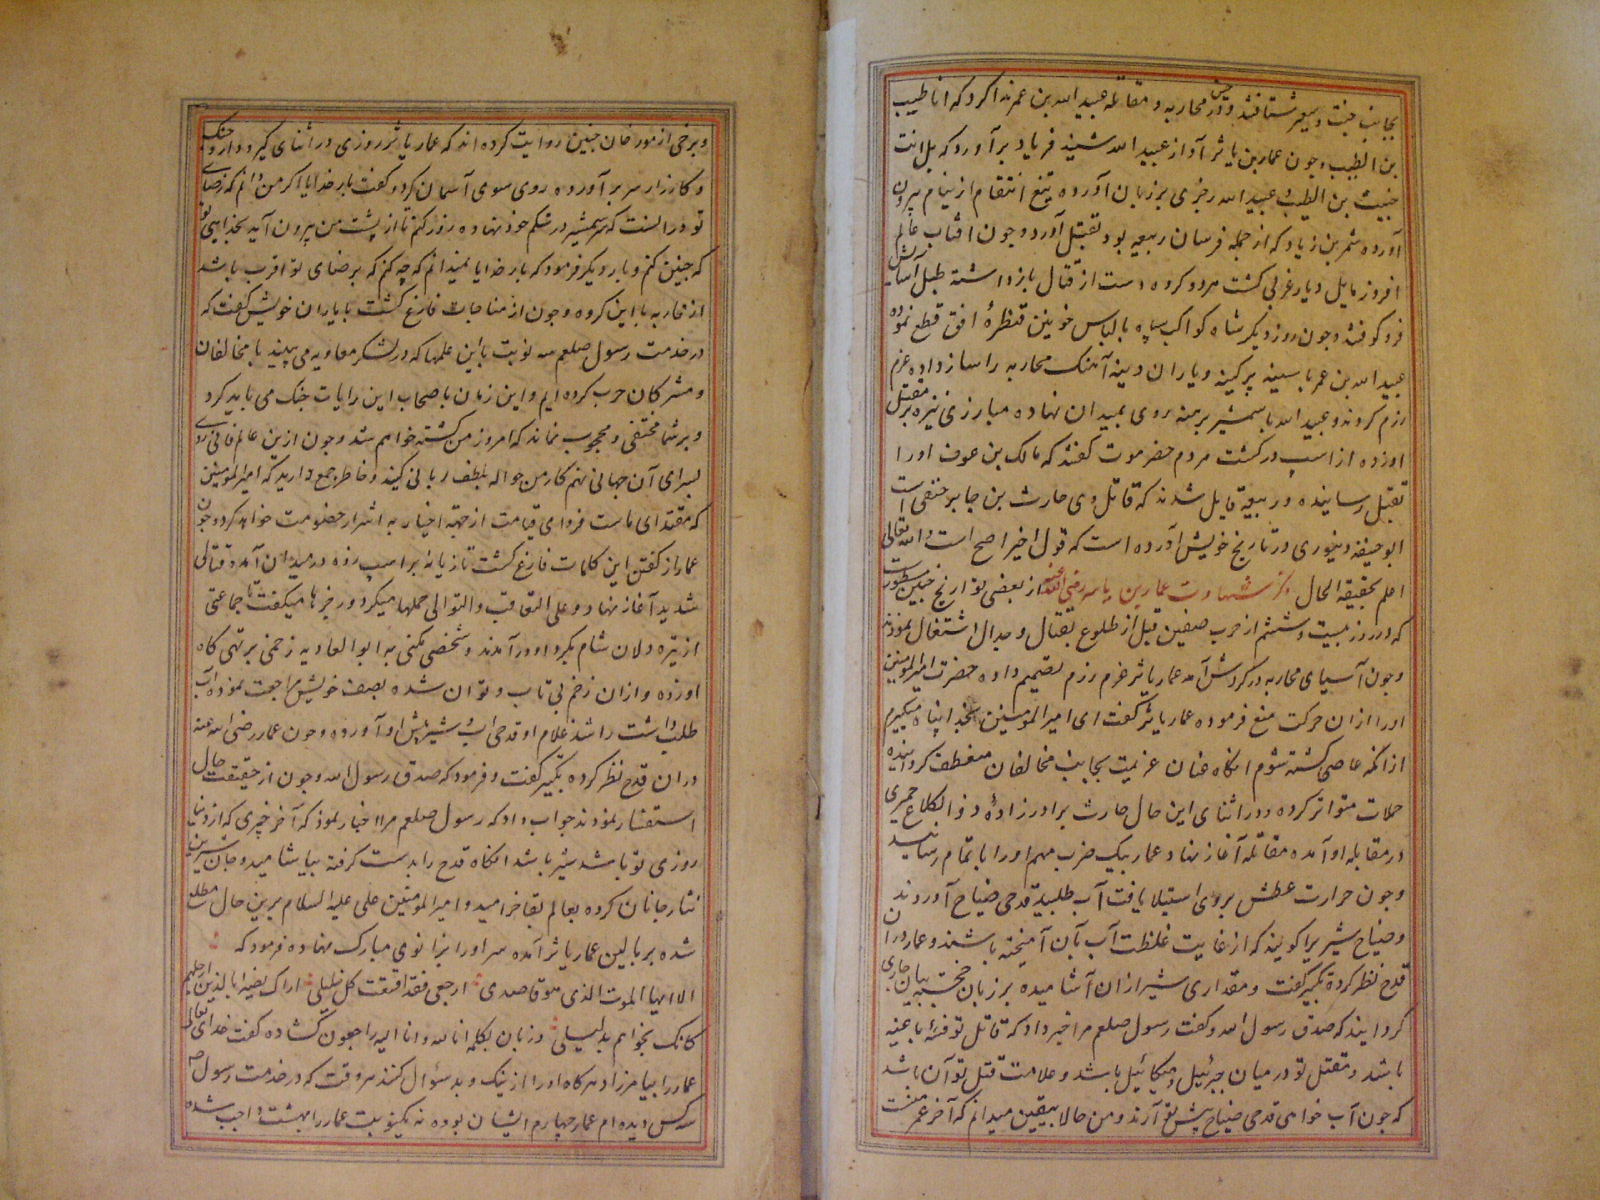 بجانب جنت و سعیر شتافتند و در حین محاربه و مقاتله عبید الله بن عمر ندا کرد که انا طیب
بن الطیب و چون عمار بن یاسر آواز عبید الله شنید فریاد برآورد که بل انت
خبیث بن الطیب عبید الله رجزی بر زبان آورده تیغ انتقام از نیام بیرون
آورده شمر بن زیاد که از جمله فرسان ربیعه بود بقتل آورد و چون افتاب عالم
افروز مایل دیار غربی کشت هر دو کروه دست از قتال بازداشته طبل آسایش
فرو کوفتند و چون روز دیکر شاه کواکب سپاه بالباس خونین قنطرهٔ افق قطع نموده
عبید الله بن عمر با سینه پر کینه و یاران دینه آهنک محاربه را ساز داده عزم
رزم کردند و عبید الله با شمشیر برهنه روی بمیدان نهاده مبارزی نیزه بر مقتل
او زده از اسب در کشت مردم حضرموت گفتند که مالک بن عوف او را
بقتل رسانیده و ربیعه قایل شدند که قاتل وی حارث بن جابر حنفی است
ابو حنیفه دینوری در تاریخ خویش آورده است که قول اخیر اصح است و الله تعالی
اعلم بحقیقة الحال ذکر شهادت عمار بن یاسر رضی الله عنه از بعضی تواریخ چنین مسطورست
که در روز بیست و ششم از حرب صفین قبل از طلوع بقتال و جدال اشتغال نمودند
و چون آسیای محاربه در کردش آمد عمار یاسر عزم رزم تصمیم داده حضرت امیرالمومنین
او را از ان حرکت منع فرموده عمار یاسر کفت ای امیر المومنین بخدا پناه میکیرم
از آنکه عاصی کشته شوم انکاه عنان عزیمت بجانب مخالفان منعطف کردانیده
حملات متواتر کرده و در اثنای این حال حارث برادرزادهٔ ذو الکلاع حمیری
در مقابله او آمده مقاتله آغاز نهاد و عمار بیک ضرب مهم او را باتمام رسانید
و چون حرارت عطش بروی استیلا یافت آب طلبید قدحی ضیاح آوردند
و ضیاح شیر را کویند که از غایت غلظت آب بآن آمیخته باشند و عمار در ان
قدح نظر کرده تکبیر کفت و مقداری شیر از ان آشامیده بر زبان خجسته بیان جاری
کردانید که صدق رسول الله و کفت رسول صلعم مرا خبر داد که قاتل تو فئهٔ باغیه
باشد و مقتل تو در میان جبرئیل و میکائیل باشد و علامت قتل تو آن باشد
که چون آب خواهی قدحی ضیاح پیش تو آرند و من حالا بیقین میدانم که آخر عمر منست
و برخی از مورخان چنین روایت کرده اند که عمار یاسر روزی در اثنای کیر و دار و جنک
و کارزار سر برآورده روی سوی آسمان کرد و کفت بار خدایا اکر من دانم که رضای
تو در انست که سر شمشیر در شکم خود نهاده زور کنم تا از پشت من بیرون آید بخدایی تو
که چنین کنم و بار دیکر فرمود که بار خدایا نمیدانم که چه کنم که برضای تو اقرب باشد
از محاربه با این کروه و چون از مناجات فارغ کشت با یاران خویش کفت که
در خدمت رسول صلعم سه نوبت با این علمها که در لشکر معاویه می بینید با مخالفان
و مشرکان حرب کرده ایم و این زمان با صحاب این رایات جنک می باید کرد
و بر شما مختفی و محجوب نماند که امروز من کشته خواهم شد و چون ازین عالم فانی روی
بسرای آن جهانی نهم کار من حواله بلطف ربانی کنید و خاطر جمع دارید که امیر المومنین
که مقتدای ماست فردای قیامت از جهة اخیار به اشرار خصومت خواهد کرد و چون
عمار از کفتن این کلمات فارغ کشت تازیانه بر اسپ زده در میدان آمد و قتالی
شدید آغاز نهاد و علی التعاقب و التوالی حملها میکرد و رجزها میکفت تا جماعتی
از تیره دلان شام بکرد او در آمدند و شخصی مکنی به ابو العادیه زخمی بر تهی کاه
او زده و از ان زخم بی تاب و توان شده بصف خویش مراجعت نموده آب
طلب داشت راشد غلام او قدحی اب شیر پیش او آورده و چون عمار رضی الله عنه
در ان قدح نظر کرده تکبیر کفت و فرمود که صدق رسول الله و چون از حقیقت حال
استفسار نمودند جواب داد که رسول صلعم مرا اخبار نمود که آخر چیزی که از دنیا
روزی تو باشد شیر باشد انکاه قدح را بدست کرفته بیاشامید و جان شیرین
نثار جانان کرده بعالم بقا خرامید و امیر المومنین علی علیه السلام برین حال مطلع
شده بر بالین عمار یاسر آمده سر او را بزانوی مبارک نهاده فرمود که
الا ایها الموت الذی هو قاصدی ارحنی فقد افنیت کل خلیلی اراک بصیرا بالذین احبهم
کانک تنحو نحوهم بدلیلی و زبان بکلمه انا لله و انا الیه راجعون کشاده کفت خدای تعالی
عمار را بیامرزاد هر کاه او را از نیک و بد سئوال کنند هر وقت که در خدمت رسول
سه کس دیده ام عمار چهارم ایشان بوده نه یکنوبت عمار را بهشت واجب شده